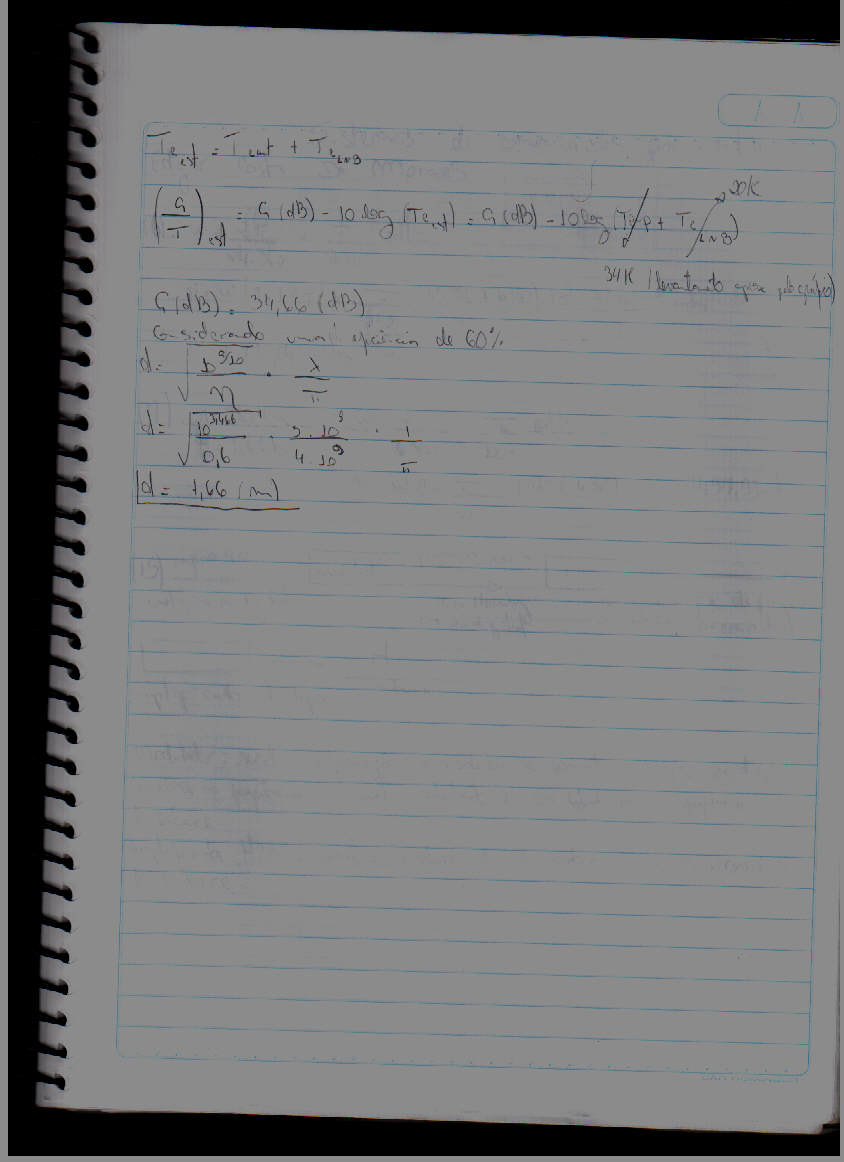 Te_est = T_ant + Te_LNB
(G/T)_est = G(dB) - 10 log (Te_est) = G(dB) - 10 log (T + Te_LNB)
20K
34K (levantamento pela equipe)
G(dB) = 34,66 (dB)
Considerando uma eficiência de 60%
d = √(10^(G/10)/η) · λ/π
d = √(10^3,466/0,6) · 3·10^8/4·10^9 · 1/π
d = 1,66 (m)